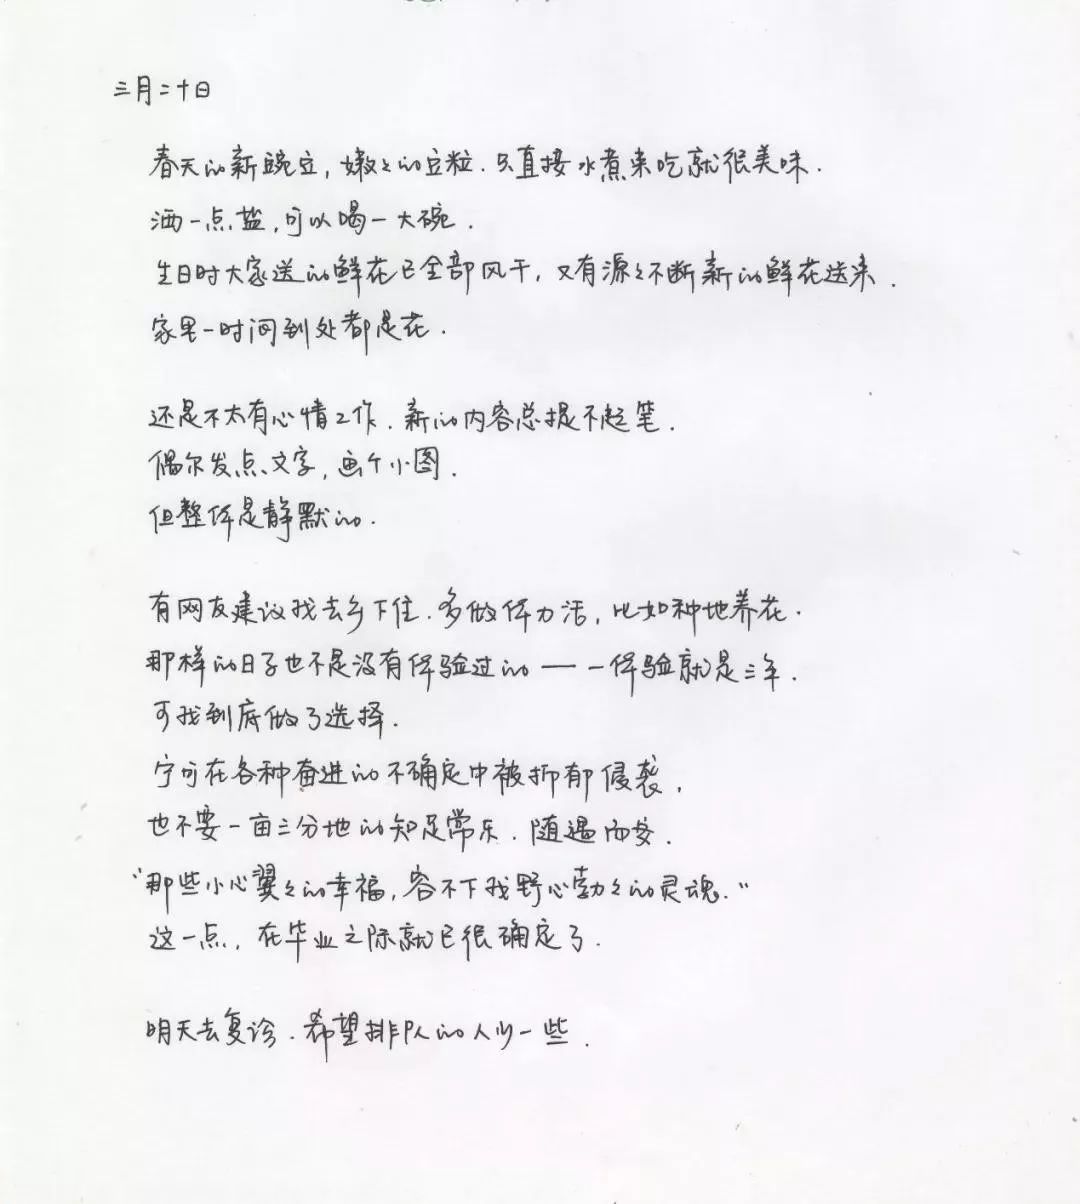 三月二十日
春天的新豌豆，嫩々的豆粒．只直接水煮来吃就很美味．
洒一点盐，可以喝一大碗．
生日时大家送的鲜花已全部风干，又有源々不断新的鲜花送来．
家里一时间到处都是花．
还是不太有心情工作．新的内容总提不起笔．
偶尔发点文字，画个小图．
但整体是静默的．
有网友建议我去乡下住．多做体力活，比如种地养花．
那样的日子也不是没有体验过的——一体验就是三年．
可我到底做了选择．
宁可在各种奋进的不确定中被抑郁侵袭，
也不要一亩三分地的知足常乐．随遇而安．
“那些小心翼々的幸福，容不下我野心勃々的灵魂．”
这一点，在毕业之际就已很确定了．
明天去复诊．希望排队的人少一些．